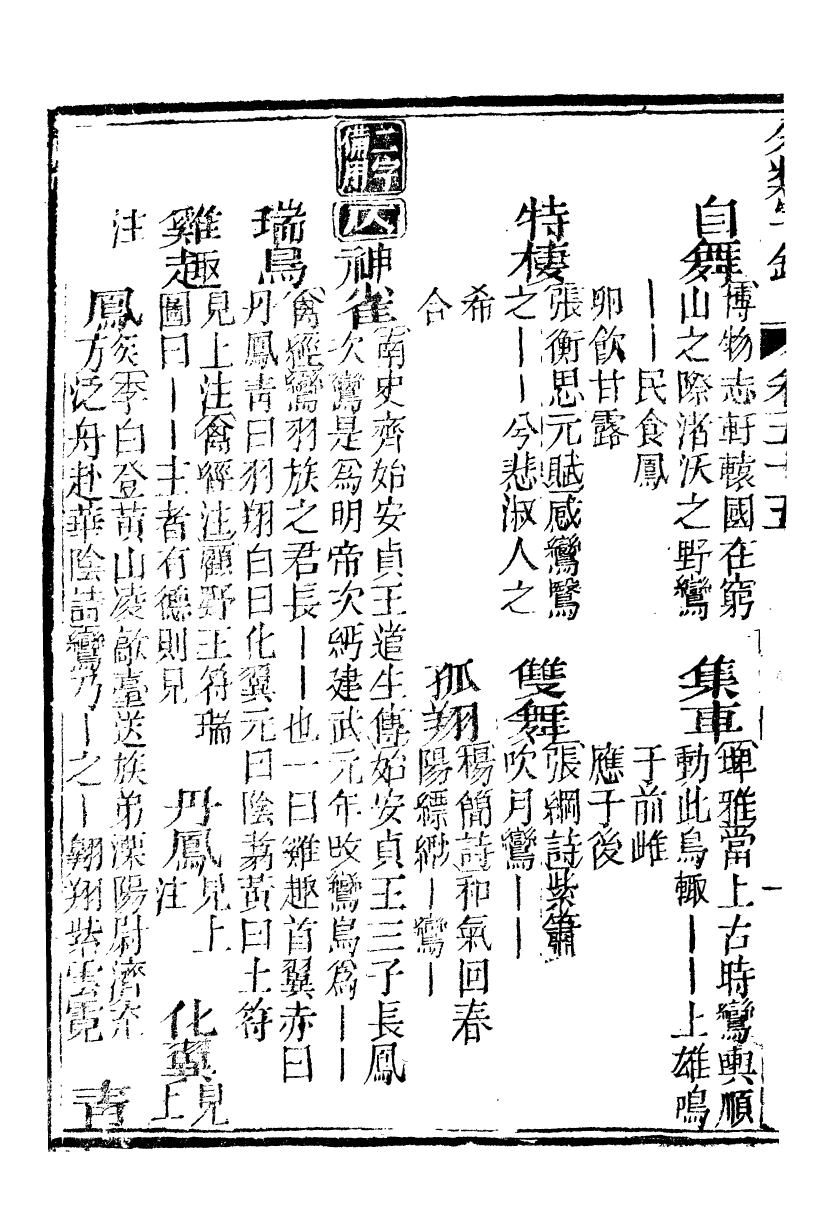 分類字錦 卷五十五
自舞 博物志軒轅國在窮
山之際渚沃之野鸞
——民食鳳
卵飲甘露
集車 埤雅當上古時鸞輿順
動此鳥輙——上雄鳴
于前雌
應于後
特棲 張衡思元賦感鸞鷖
之——兮悲淑人之
希
合
雙舞 張綱詩紫簫
吹月鸞——
孤翔 楊簡詩和氣回春
陽縹緲—鸞—
二字備用
仄
神雀 南史齊始安貞王道生傳始安貞王三子長鳳
次鸞是爲明帝次緬建武元年改鸞鳥爲——
瑞鳥 禽經鸞羽族之君長——也一曰雞趣首翼赤曰
丹鳳青曰羽翔白曰化翼元曰陰翥黃曰土符
雞趣 見上注禽經注顧野王符瑞
圖曰——王者有德則見
丹鳳 見上
注
化翼 見
上
注
鳳 矣李白登黃山凌歊臺送族弟溧陽尉濟充
方泛舟赴華陰詩鸞乃—之—翱翔紫雲霓